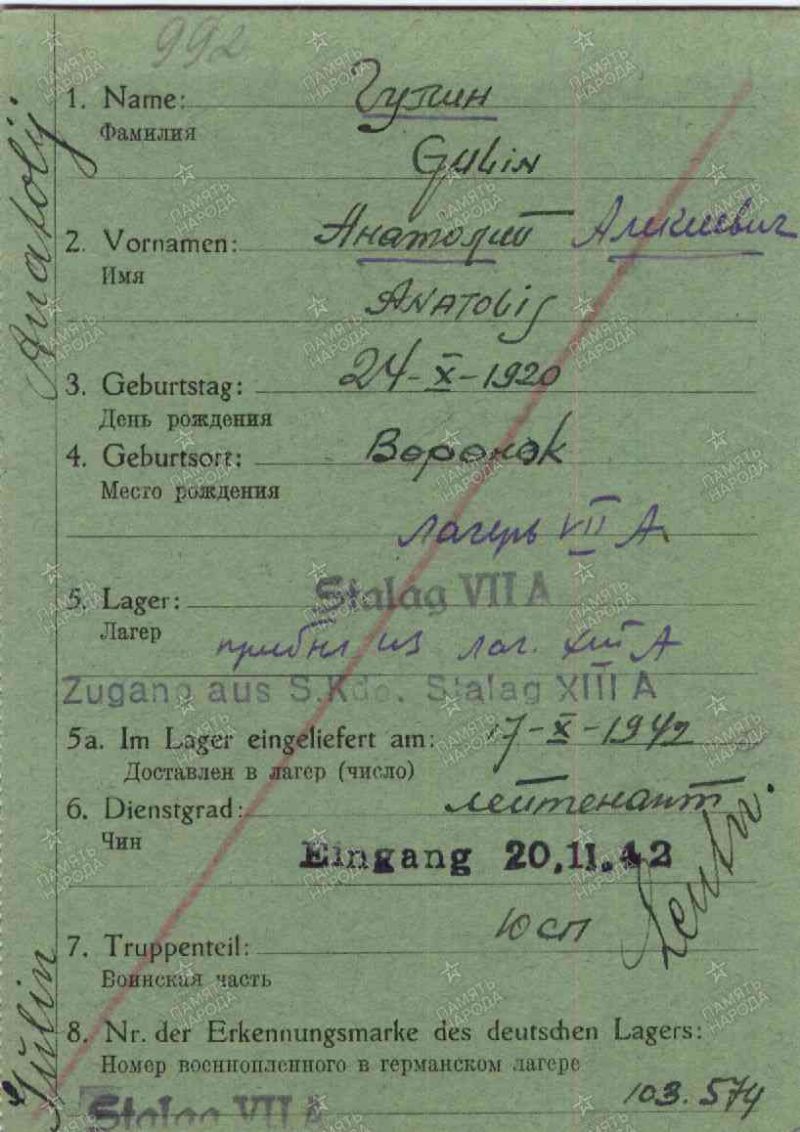 992
1. Name: Гулин
Фамилия
Gulin
2. Vornamen: Анатолий Алексеевич
Имя
ANATOLIJ
3. Geburtstag: 24-X-1920
День рождения
4. Geburtsort: Воронеж
Место рождения
лагерь VII А
5. Lager: Stalag VII A
Лагер
прибыл из лаг. XIII А
Zugang aus S.Kdo. Stalag XIII A
5a. Im Lager eingeliefert am: 17-X-1942
Доставлен в лагер (число)
6. Dienstgrad: лейтенант
Чин
Eingang 20.11.42
Leutn.
7. Truppenteil: 10 сп
Воинская часть
8. Nr. der Erkennungsmarke des deutschen Lagers:
Номер военнопленного в германском лагере
103.574
Stalag VII A
Gulin Anatolij
ПАМЯТЬ НАРОДА